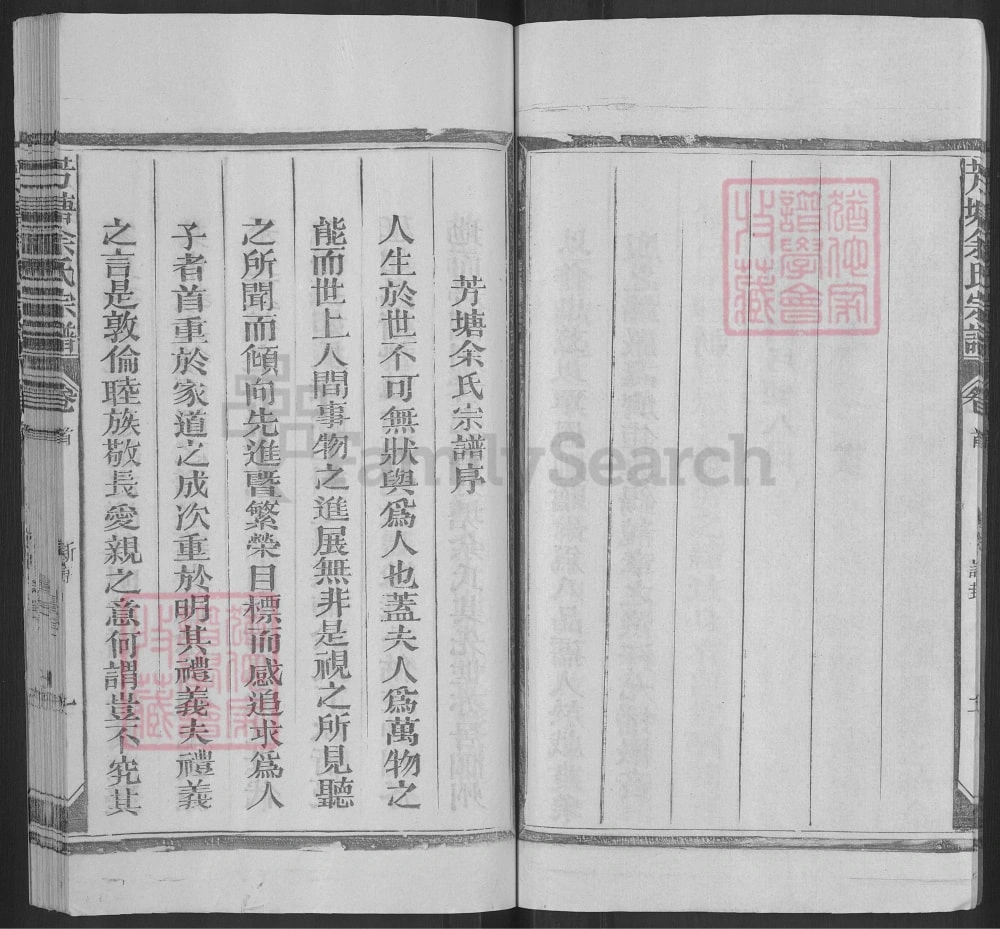 芳塘余氏宗譜
卷首
猶他家
譜學會
收藏
芳塘余氏宗譜序
人生於世不可無狀與爲人也蓋夫人爲萬物之
能而世上人間事物之進展無非是視之所見聽
之所聞而傾向先進暨繁榮目標而感追求爲人
子者首重於家道之成次重於明其禮義夫禮義
之言是敦倫睦族敬長愛親之意何謂豈不究其
猶他家
譜學會
收藏
芳塘余氏宗譜
卷首
新序
FamilySearch